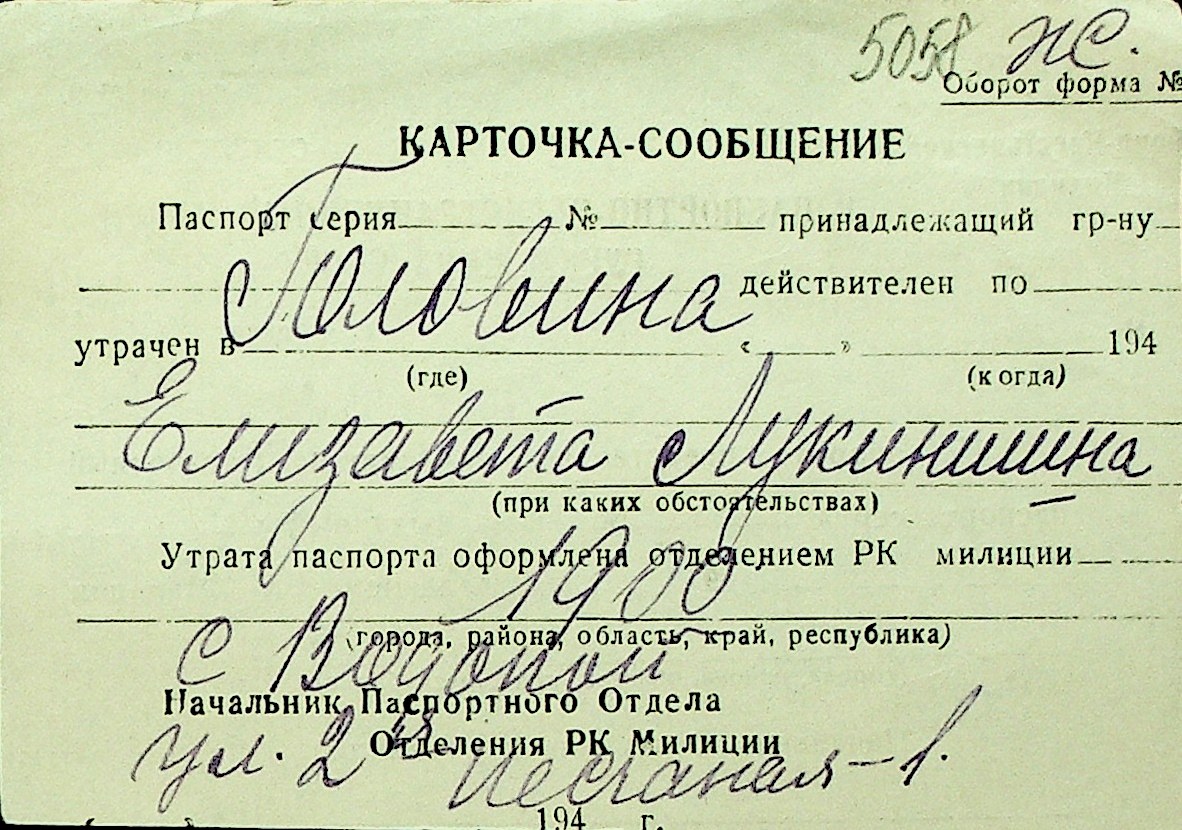 5058 жс.
Оборот форма №
КАРТОЧКА-СООБЩЕНИЕ
Паспорт серия № принадлежащий гр-ну
Головина
действителен по
утрачен в « » 194
(где) (когда)
Елизавета Лукинишна
(при каких обстоятельствах)
Утрата паспорта оформлена отделением РК милиции
1900
(города, района, область, край, республика)
с Водопой
Начальник Паспортного Отдела
Отделения РК Милиции
ул. 2я Песчаная - 1.
194 г.